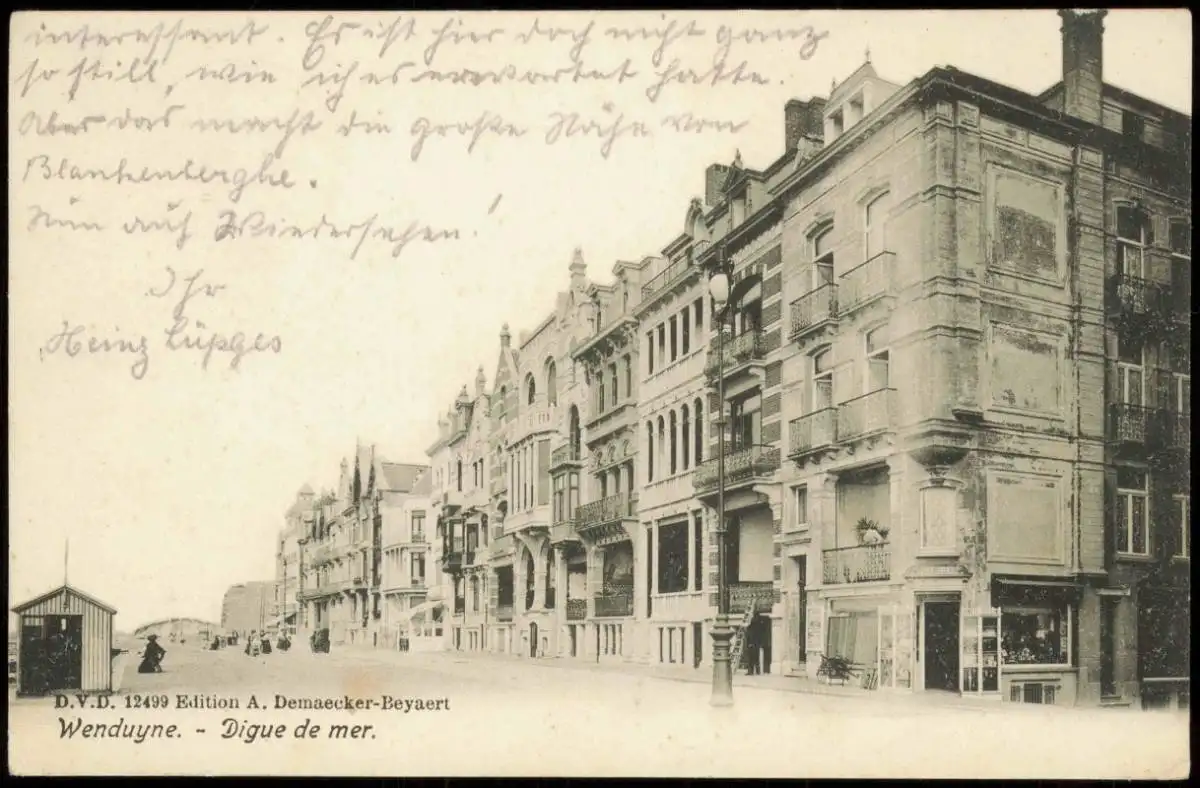 interessant. Es ist hier doch nicht ganz
so still, wie ich es erwartet hatte.
Aber das macht die große Nähe von
Blankenberghe.
Nun auf Wiedersehen!
Ihr
Heinz Lüpges
D.V.D. 12499 Edition A. Demaecker-Beyaert
Wenduyne. - Digue de mer.